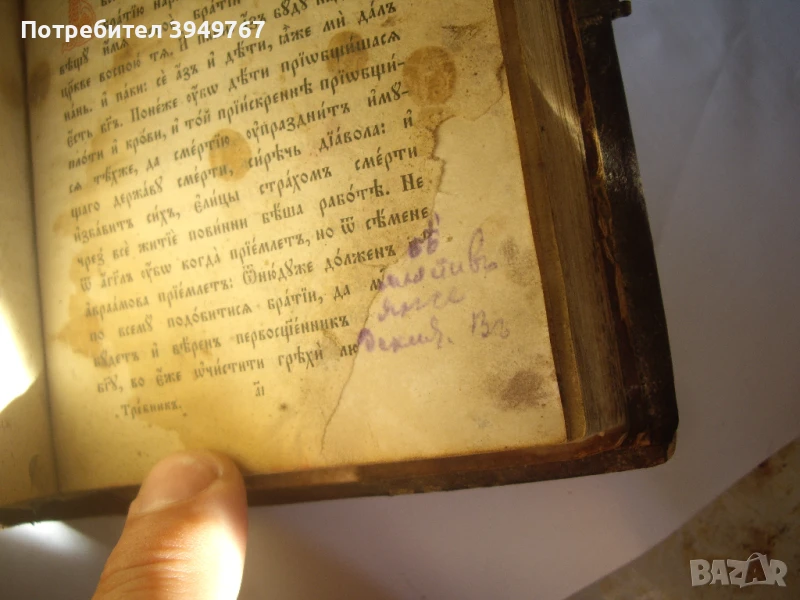 Потребител 3949767
цр҃кве воспою́ тѧ̀. И҆ па́ки: а҆́зъ бꙋ́дꙋ
нань. и҆ па́ки: сѐ а҆́зъ и҆ дѣ́ти, ꙗ҆̀же мѝ да́лъ
є҆́сть бг҃ъ. Поне́же ᲂу҆̀бѡ дѣ́ти прїѡбщи́шасѧ
пло́ти и҆ кро́ви, и҆ то́й прїи́скреннѣ прїѡбщи́-
сѧ тѣ́хже, да сме́ртїю ᲂу҆праздни́тъ и҆мꙋ́-
щаго держа́вꙋ сме́рти, си́рѣчь дїа́вола: и҆
и҆зба́витъ си́хъ, є҆ли́цы стра́хомъ сме́рти
чрез̾ всѐ житїѐ пови́нни бѣ́ша рабо́тѣ. Не
ѿ а҆́гг҃лъ ᲂу҆́бѡ когда̀ прїе́млетъ, но ѿ сѣ́мене
а҆враа́мова прїе́млетъ: Ѿню́дꙋже до́лженъ бѣ̀
по всемꙋ̀ подо́битисѧ бра́тїи, да ми́лостивъ
бꙋ́детъ и҆ вѣ́ренъ первосщ҃е́нникъ ꙗ҆̀же
бг҃ꙋ, во є҆́же ѡ҆чи́стити грѣхѝ людскїѧ. Въ
Тре́бникъ. а҃і
BAZAR